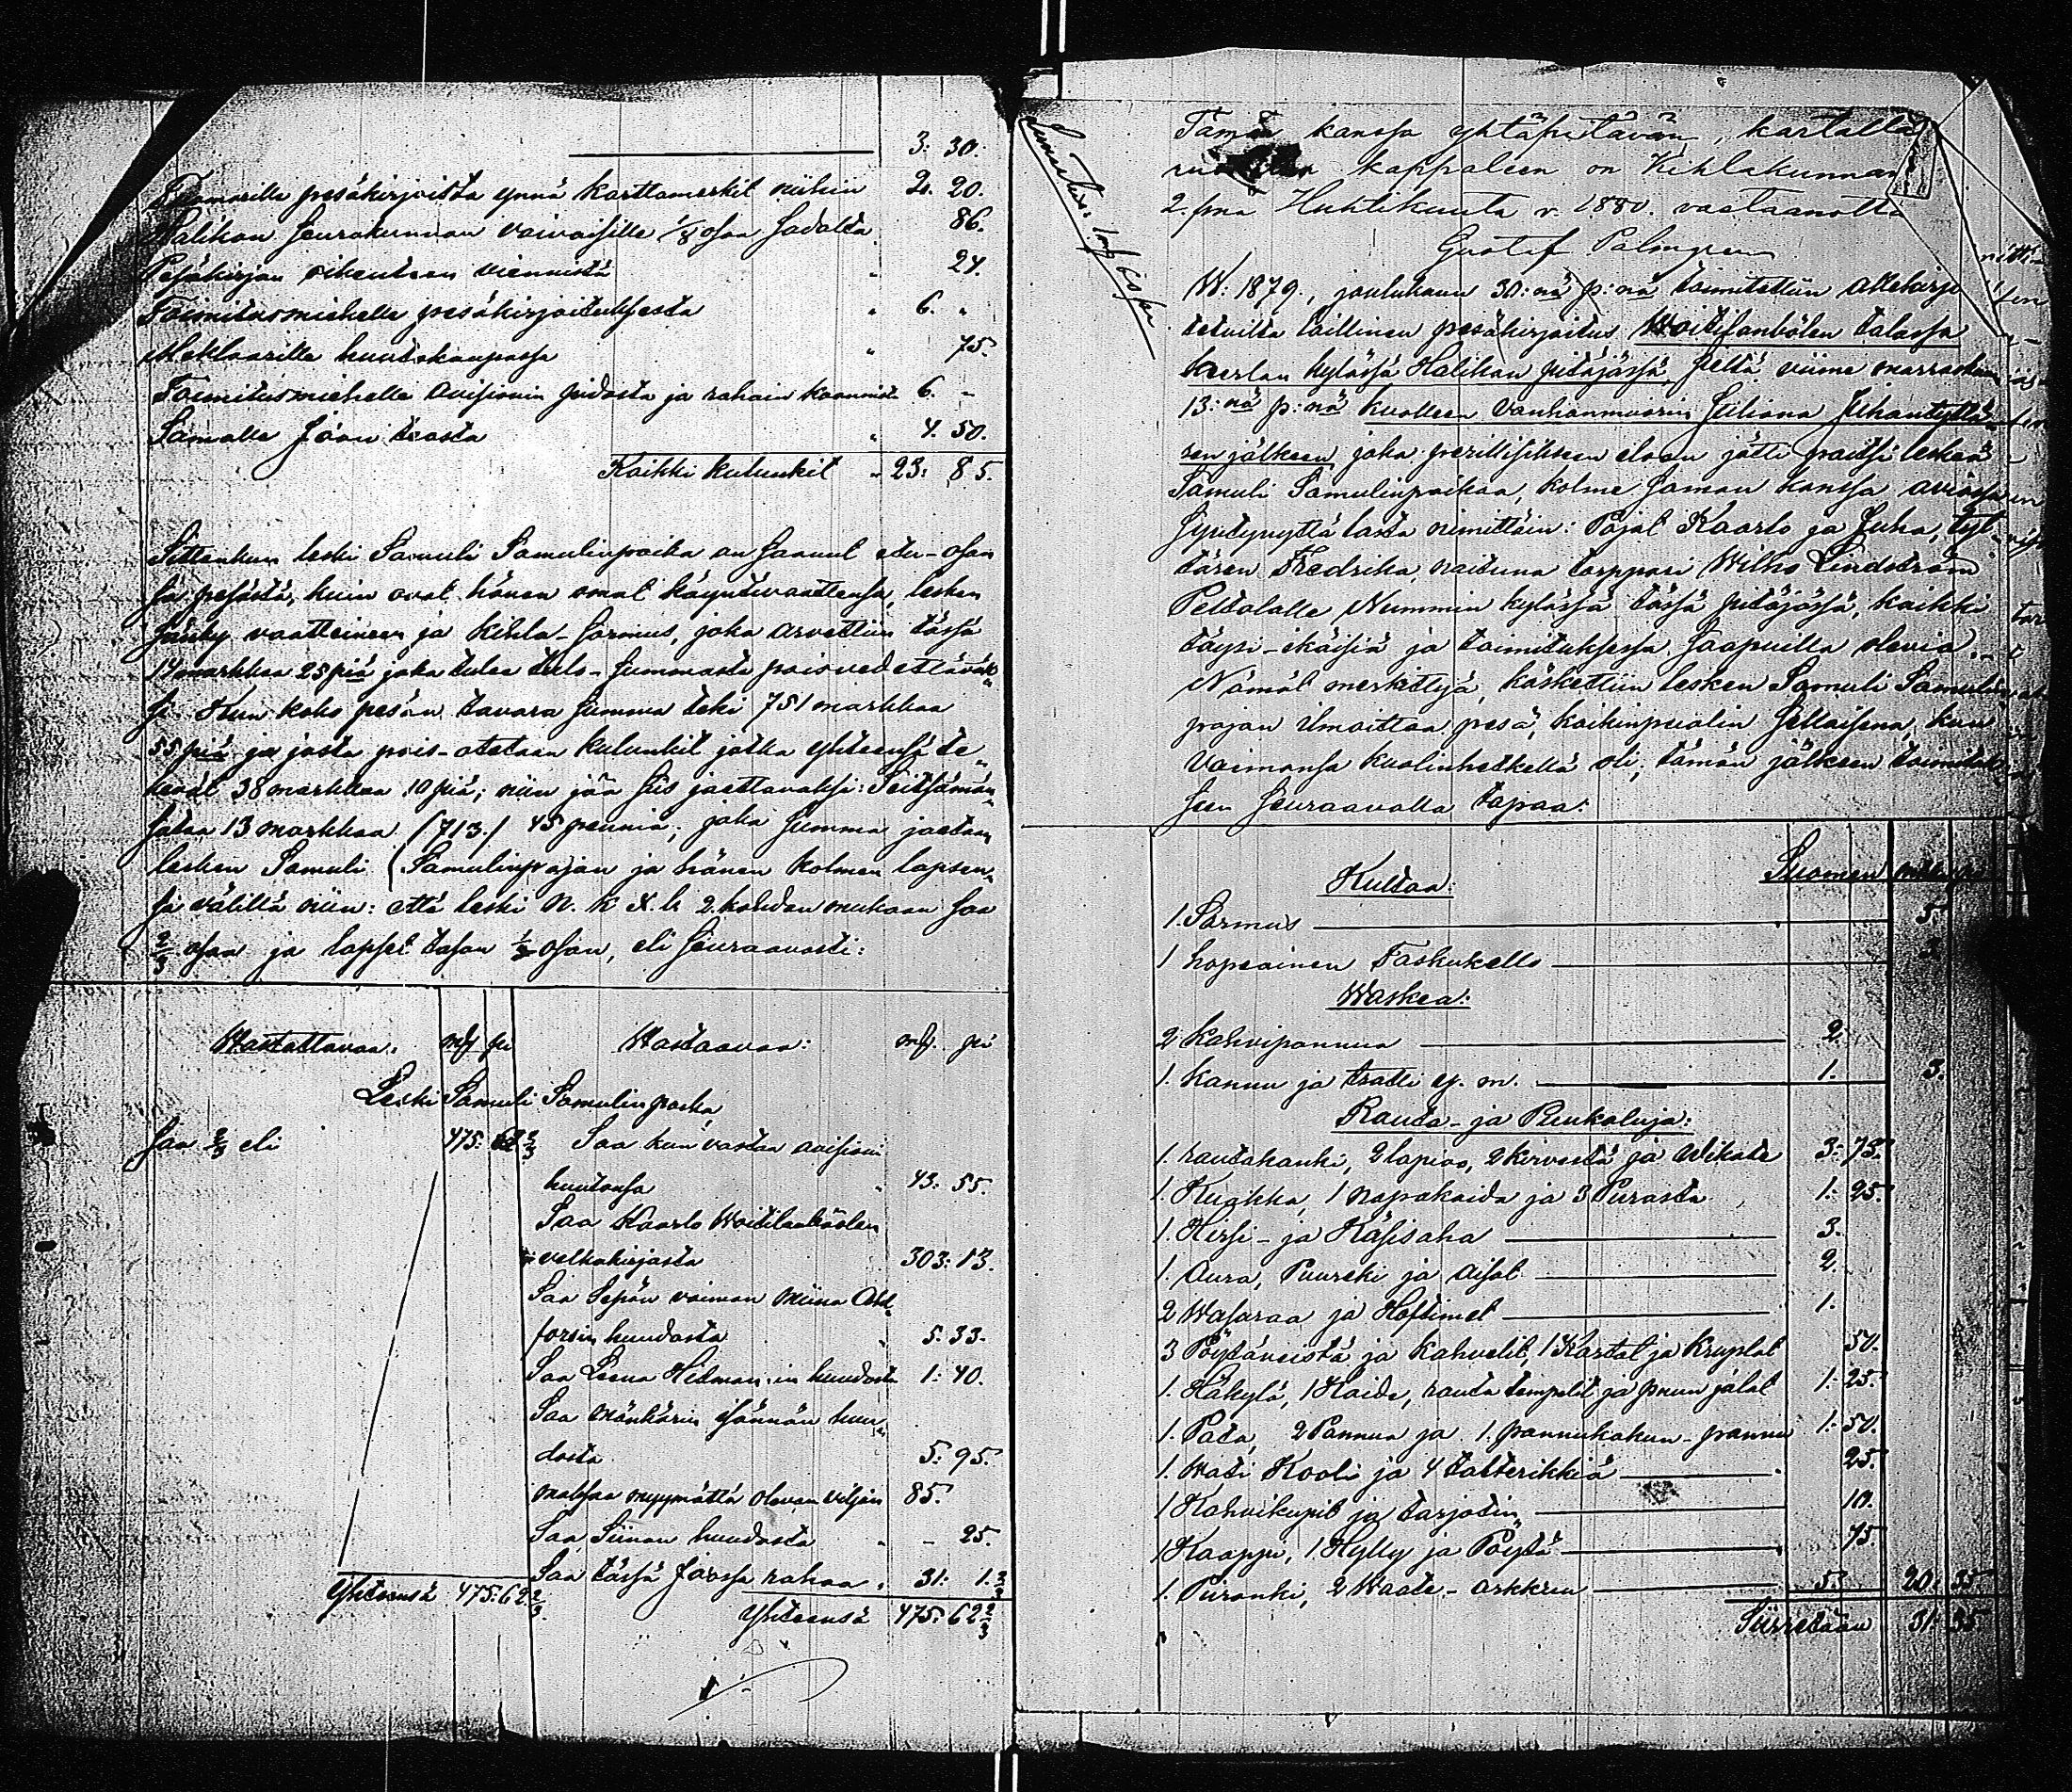 3: 30.
pesäkirjoista ynnä karttamerkit niihin 2. 20.
Halikon seurakunnan vaivaisille 1/8 osaa sadalta 86.
Pesäkirjan oikeuteen viennistä " 24.
Toimitusmiehelle pesäkirjoituksesta " 6. "
Meklaarille huutokaupassa " 75.
Toimitusmiehelle auksionin pidosta ja rahain 6. "
Samalle jaon teosta " 4. 50.
Kaikki kulunkit " 23: 85.
Sittenkun leski Samuli Samulinpoika on saanut etu-osan
sa pesästä, kuin ovat hänen omat käyntivaatteensa, lesken
sänky vaatteineen ja kihla-sormus, joka arvettiin tässä
14 markkaa 25 piä joka tulee tulo-summasta poisvedettäväk„
si. Kun koko pesän tavara summa teki 751 markkaa
55 piä ja josta pois-otetaan kulunkit jotka yhteensä te„
kevät 38 markkaa 10 piä; niin jää siis jaettavaksi: Seitsämän„
sataa 13 markkaa (713.) 45 penniä; joka summa jaetaan
lesken Samuli (Samulinpojan ja hänen kolmen lapsen„
sa välillä niin: että leski N. K. 2 kohdan mukaan saa
2/3 osaa ja lapset tasan 1/3 osan, eli seuraavasti:
Wastattavaa: mk pi Wastaavaa: mk. pi
Leski Samuli Samulinpoika
Saa 2/3 eli 475: 62 2/3 Saa kun vastaa auksioni
huutonsa " 43: 55.
Saa Kaarlo Woitilanbölen
velkakirjasta 303: 13.
Saa Sepän vaimon Miina
forsin huudosta " 5. 33.
Saa Leena Hitman:in huudosta 1: 40.
Saa isännän huu„
dosta 5: 95.
maksaa myymättä olevan viljan 85.
Saa Siinan huudosta " - 25.
Saa tässä jaossa rahaa " 31: 1. 2/3
Yhteensä 475: 62 2/3 Yhteensä 475: 62 2/3
Tämän kanssa yhtäpitävän, kartalla
kappaleen on Kihlakunnan
2. pnä Huhtikuuta v. 1880. vastaanotta
Gustaf Palmgren
W: 1879., joulukuun 30:nä p:nä toimitettiin allekirjo
tetuilta laillinen pesäkirjoitus Woitilanbölen talossa
kylässä Halikon pitäjässä, siellä viime marraskuun
13:nä p:nä kuolleen vanhanmuorin Juliana Juhantyttä„
ren jälkeen joka perillisikseen eloon jätti paitsi leskeä
Samuli Samulinpoikaa, kolme saman kanssa aviossa
syntynyttä lasta nimittäin: Pojat Kaarlo ja Juha, tyt„
tären Fredrika, naituna torppari Wilho Lindström
Peltolalle Nummin kylässä tässä pitäjässä, kaikki
täysi-ikäisiä ja toimituksessa saapuilla olevia.
Nämät merkittyä, käskettiin lesken Samuli Samulin
pojan ilmoittaa pesä, kaikinpuolin sellaisena, kun
vaimonsa kuolinhetkellä oli; tämän jälkeen toimitet
seen seuraavalla tapaa:
Kultaa: Suomen mk pi
1. Sormus 5.
1 hopeainen Taskukello 3
Waskea:
2 Kahvipannua 2.
1. Kannu ja tratti y. m. 1. 3.
Rauta- ja Puukaluja:
1. rautakanki, 2 lapioo, 2 kirvestä ja Wikate 3: 75.
1. Kuokka, 1 napakaida ja 3 Purasta 1: 25.
1. Hirsi- ja Käsisaha 3.
1. Aura, Puureki ja aisat 2.
2 Wasaraa ja Hohtimet 1.
3 Pöytäveistä ja kahvelit, 1 Kartat ja 50.
1. Häkylä, 1 Kaide, rauta tempelit ja puun jalat 1: 25.
1. Pata, 2 Pannua ja 1. pannukakun-pannu 1: 50.
1. Wati Kooli ja 4 talterikkiä 25.
1 Kahvikupit ja tarjotin 10.
1 Kaappi, 1. Hylly ja Pöytä 75.
1. Piironki, 2 Waate-arkkuu 5. 20: 35
Siirretään 31: 35